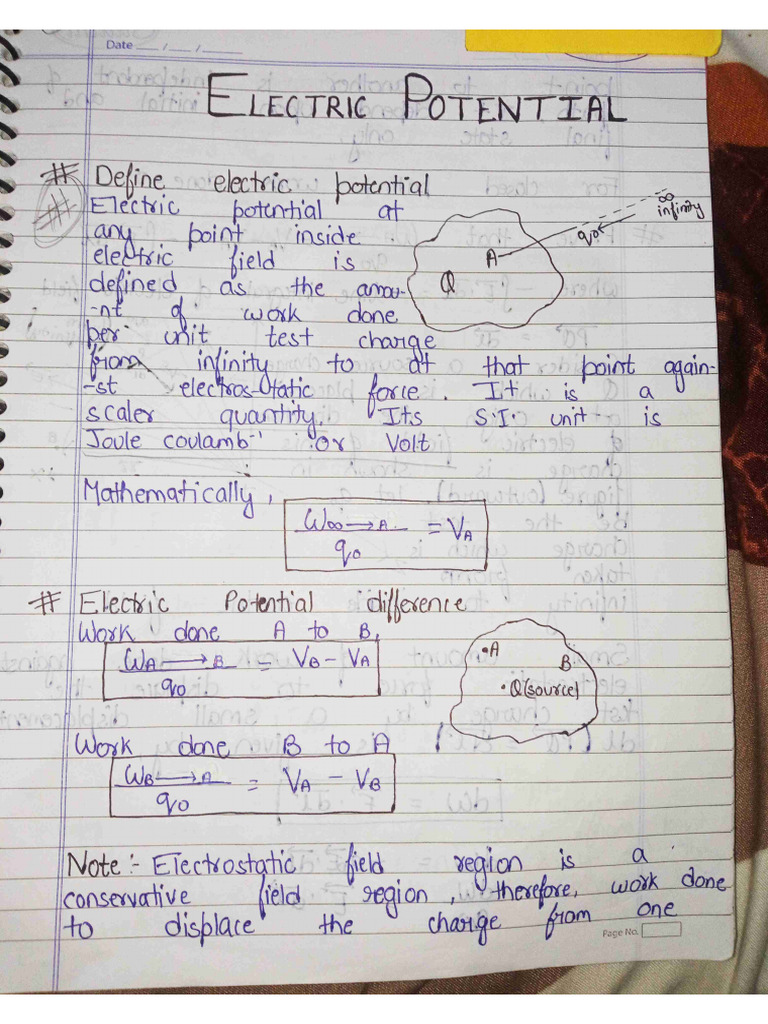 Date ___/___/___
ELECTRIC POTENTIAL
# Define electric potential
# Electric potential at
any point inside
electric field is
defined as the amou-
-nt of work done
per unit test charge
from infinity to at that point again-
-st electros-tatic force. It is a
scaler quantity. Its S.I. unit is
Joule coulamb⁻¹ or Volt
∞
infinity
q₀
A
Q
Mathematically,
W∞→A / q₀ = VA
# Electric Potential difference
Work done A to B,
WA→B / q₀ = VB - VA
•A
B
•Q(source)
Work done B to A
WB→A / q₀ = VA - VB
Note:- Electrostatic field region is a
conservative field region, therefore, work done
to displace the charge from one
Page No.